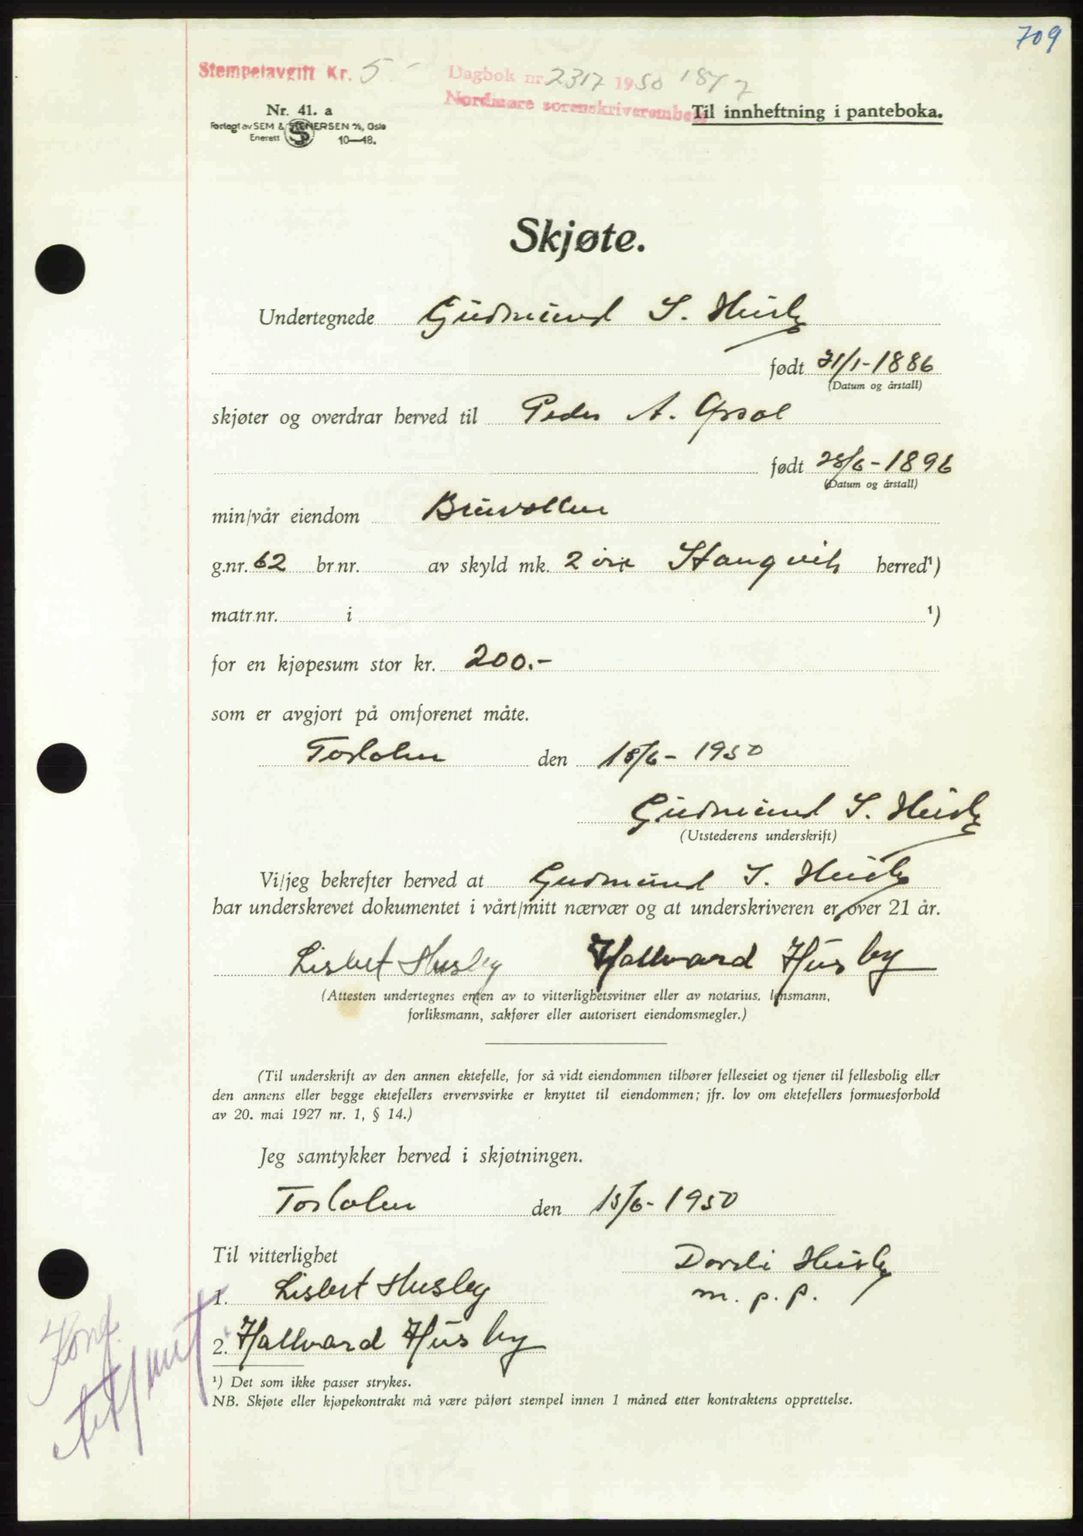 709
Stempelavgift Kr. 5 -
Dagbok nr. 2317 1950 18/7
Nordmøre sorenskriverembede
Nr. 41. a
Forlagt av SEM & STENERSEN A/S, Oslo
Enerett 10—48.
Til innheftning i panteboka.
Skjøte.
Undertegnede Gudmund S. Husby
født 21/1-1886
(Datum og årstall)
skjøter og overdrar herved til Peder A.
født 28/6-1896
(Datum og årstall)
min/vår eiendom Bruvollen
g.nr. 62 br.nr. av skyld mk. 2 øre Stangvik herred¹)
matr.nr. i ¹)
for en kjøpesum stor kr. 200.-
som er avgjort på omforenet måte.
den 15/6-1950
Gudmund S. Husby
(Utstederens underskrift)
Vi/jeg bekrefter herved at Gudmund S. Husby
har underskrevet dokumentet i vårt/mitt nærvær og at underskriveren er over 21 år.
Lisbet Husby Hallvard Husby
(Attesten undertegnes enten av to vitterlighetsvitner eller av notarius, lensmann,
forliksmann, sakfører eller autorisert eiendomsmegler.)
(Til underskrift av den annen ektefelle, for så vidt eiendommen tilhører felleseiet og tjener til fellesbolig eller
den annens eller begge ektefellers ervervsvirke er knyttet til eiendommen; jfr. lov om ektefellers formuesforhold
av 20. mai 1927 nr. 1, § 14.)
Jeg samtykker herved i skjøtningen.
den 15/6-1950
Til vitterlighet
Dordi Husby
m. p. p.
1. Lisbet Husby
2. Hallvard Husby
Konf.
¹) Det som ikke passer strykes.
NB. Skjøte eller kjøpekontrakt må være påført stempel innen 1 måned etter kontraktens opprettelse.